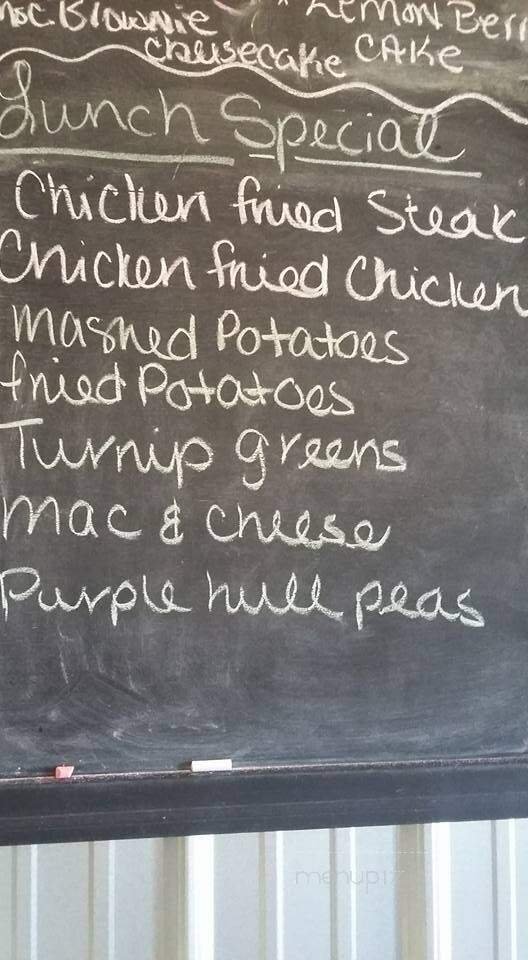 hoc. Brownie Lemon Berr
cheesecake CAKE
Lunch Special
Chicken fried Steak
Chicken fried Chicken
Mashed Potatoes
fried Potatoes
Turnip greens
Mac & cheese
Purple hull peas
menupix